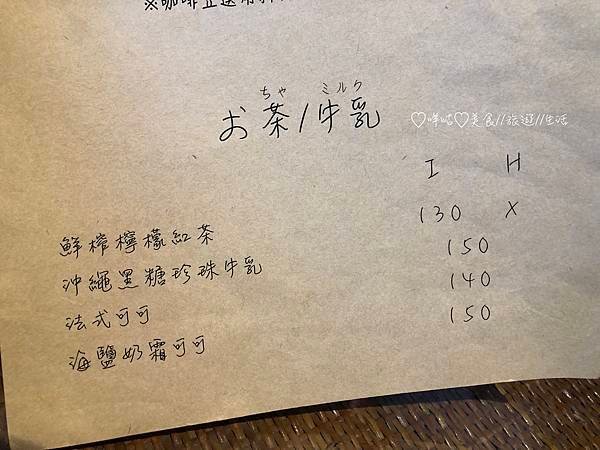 ※咖啡豆選用
ちゃ ミルク
お茶/牛乳
♡咩咕♡美食//旅遊//生活
I H
鮮榨檸檬紅茶 130 X
沖繩黑糖珍珠牛乳 150
法式可可 140
海鹽奶霜可可 150